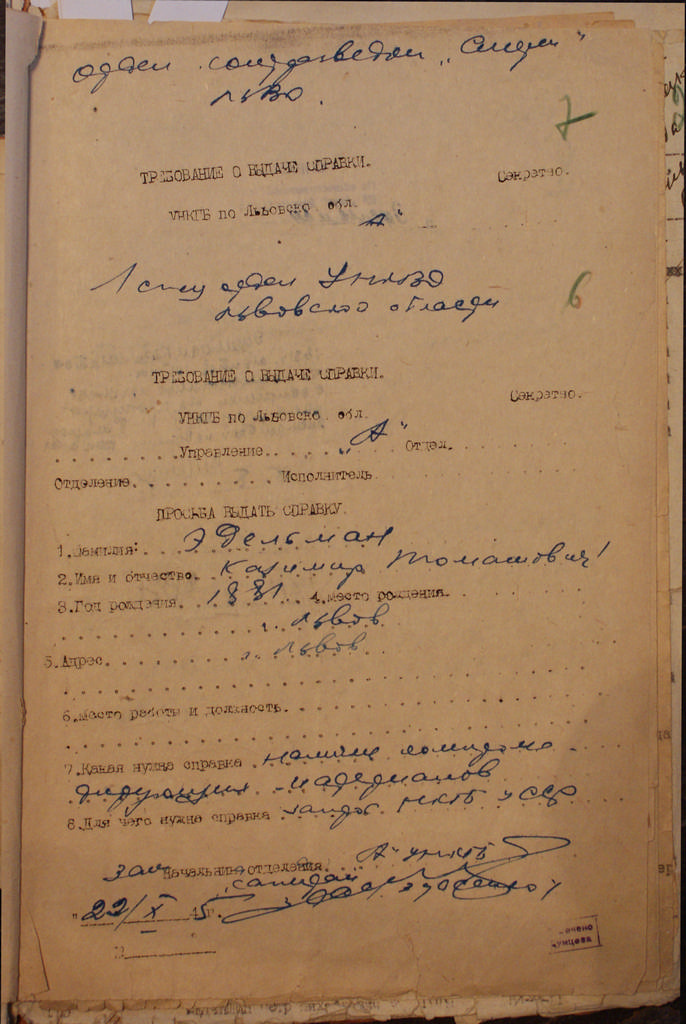 отдел контрразведки „Смерш"
ЛьВО.
7
ТРЕБОВАНИЕ О ВЫДАЧЕ СПРАВКИ.
Секретно.
УНКГБ по Львовско обл.
"А"
1 спец отдел УНКВД
Львовской области
6
ТРЕБОВАНИЕ О ВЫДАЧЕ СПРАВКИ.
Секретно.
УНКГБ по Львовско обл.
Управление "А" Отдел.
Отделение. Исполнитель
ПРОСЬБА ВЫДАТЬ СПРАВКУ
1.Фамилия: Эдельман
2.Имя и отчество. Казимир Томашович
3.Год рождения 1881 4.место рождения
г. Львов
5.Адрес г. Львов
6.место работы и должность.
7.Какая нужна справка наличие компроме-
тирующих материалов
8.Для чего нужна справка запрос НКГБ УССР
Зам Начальник отделения "А" УНКГБ
капитан
"22/X 45г.